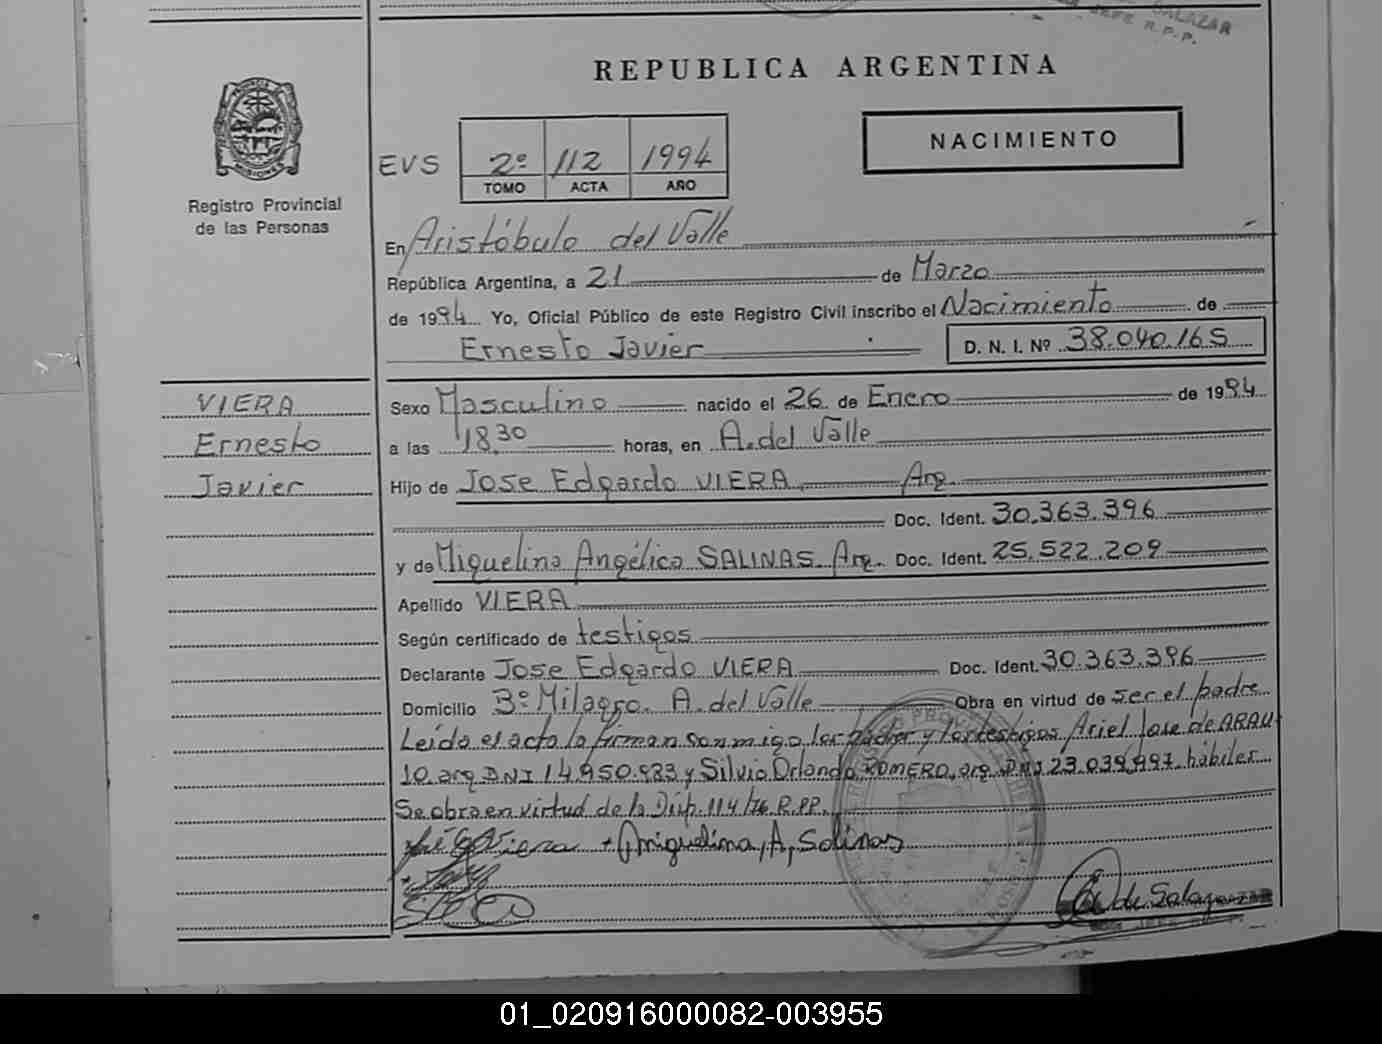 SALAZAR
JEFE R.P.P.
REPUBLICA ARGENTINA
NACIMIENTO
EVS 2º 112 1994
TOMO ACTA AÑO
Registro Provincial
de las Personas
En Aristóbulo del Valle
República Argentina, a 21 de Marzo
de 1994 Yo, Oficial Público de este Registro Civil inscribo el Nacimiento de
Ernesto Javier D. N. I. Nº 38.040.165
VIERA
Ernesto
Javier
Sexo Masculino nacido el 26 de Enero de 1994
a las 18,30 horas, en A. del Valle
Hijo de Jose Edgardo VIERA Arg.
Doc. Ident. 30.363.396
y de Miguelina Angélica SALINAS. Arg. Doc. Ident. 25.522.209
Apellido VIERA
Según certificado de testigos
Declarante Jose Edgardo VIERA Doc. Ident. 30.363.396
Domicilio Bº Milagro. A. del Valle Obra en virtud de ser el padre
Leída el acta la firman conmigo los padres y los testigos Ariel Jose de ARAU-
JO arg DNI 14.950.983 y Silvio Orlando ROMERO, arg. DNI 23.039.997. hábiles
Se obra en virtud de la Disp. 114/76 R.P.P.
Viera + Miguelina, A, Salinas
de Salazar
01_020916000082-003955